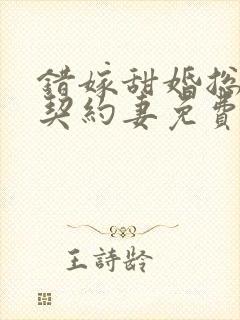 錯嫁甜婚總
契約妻免費
王詩齡